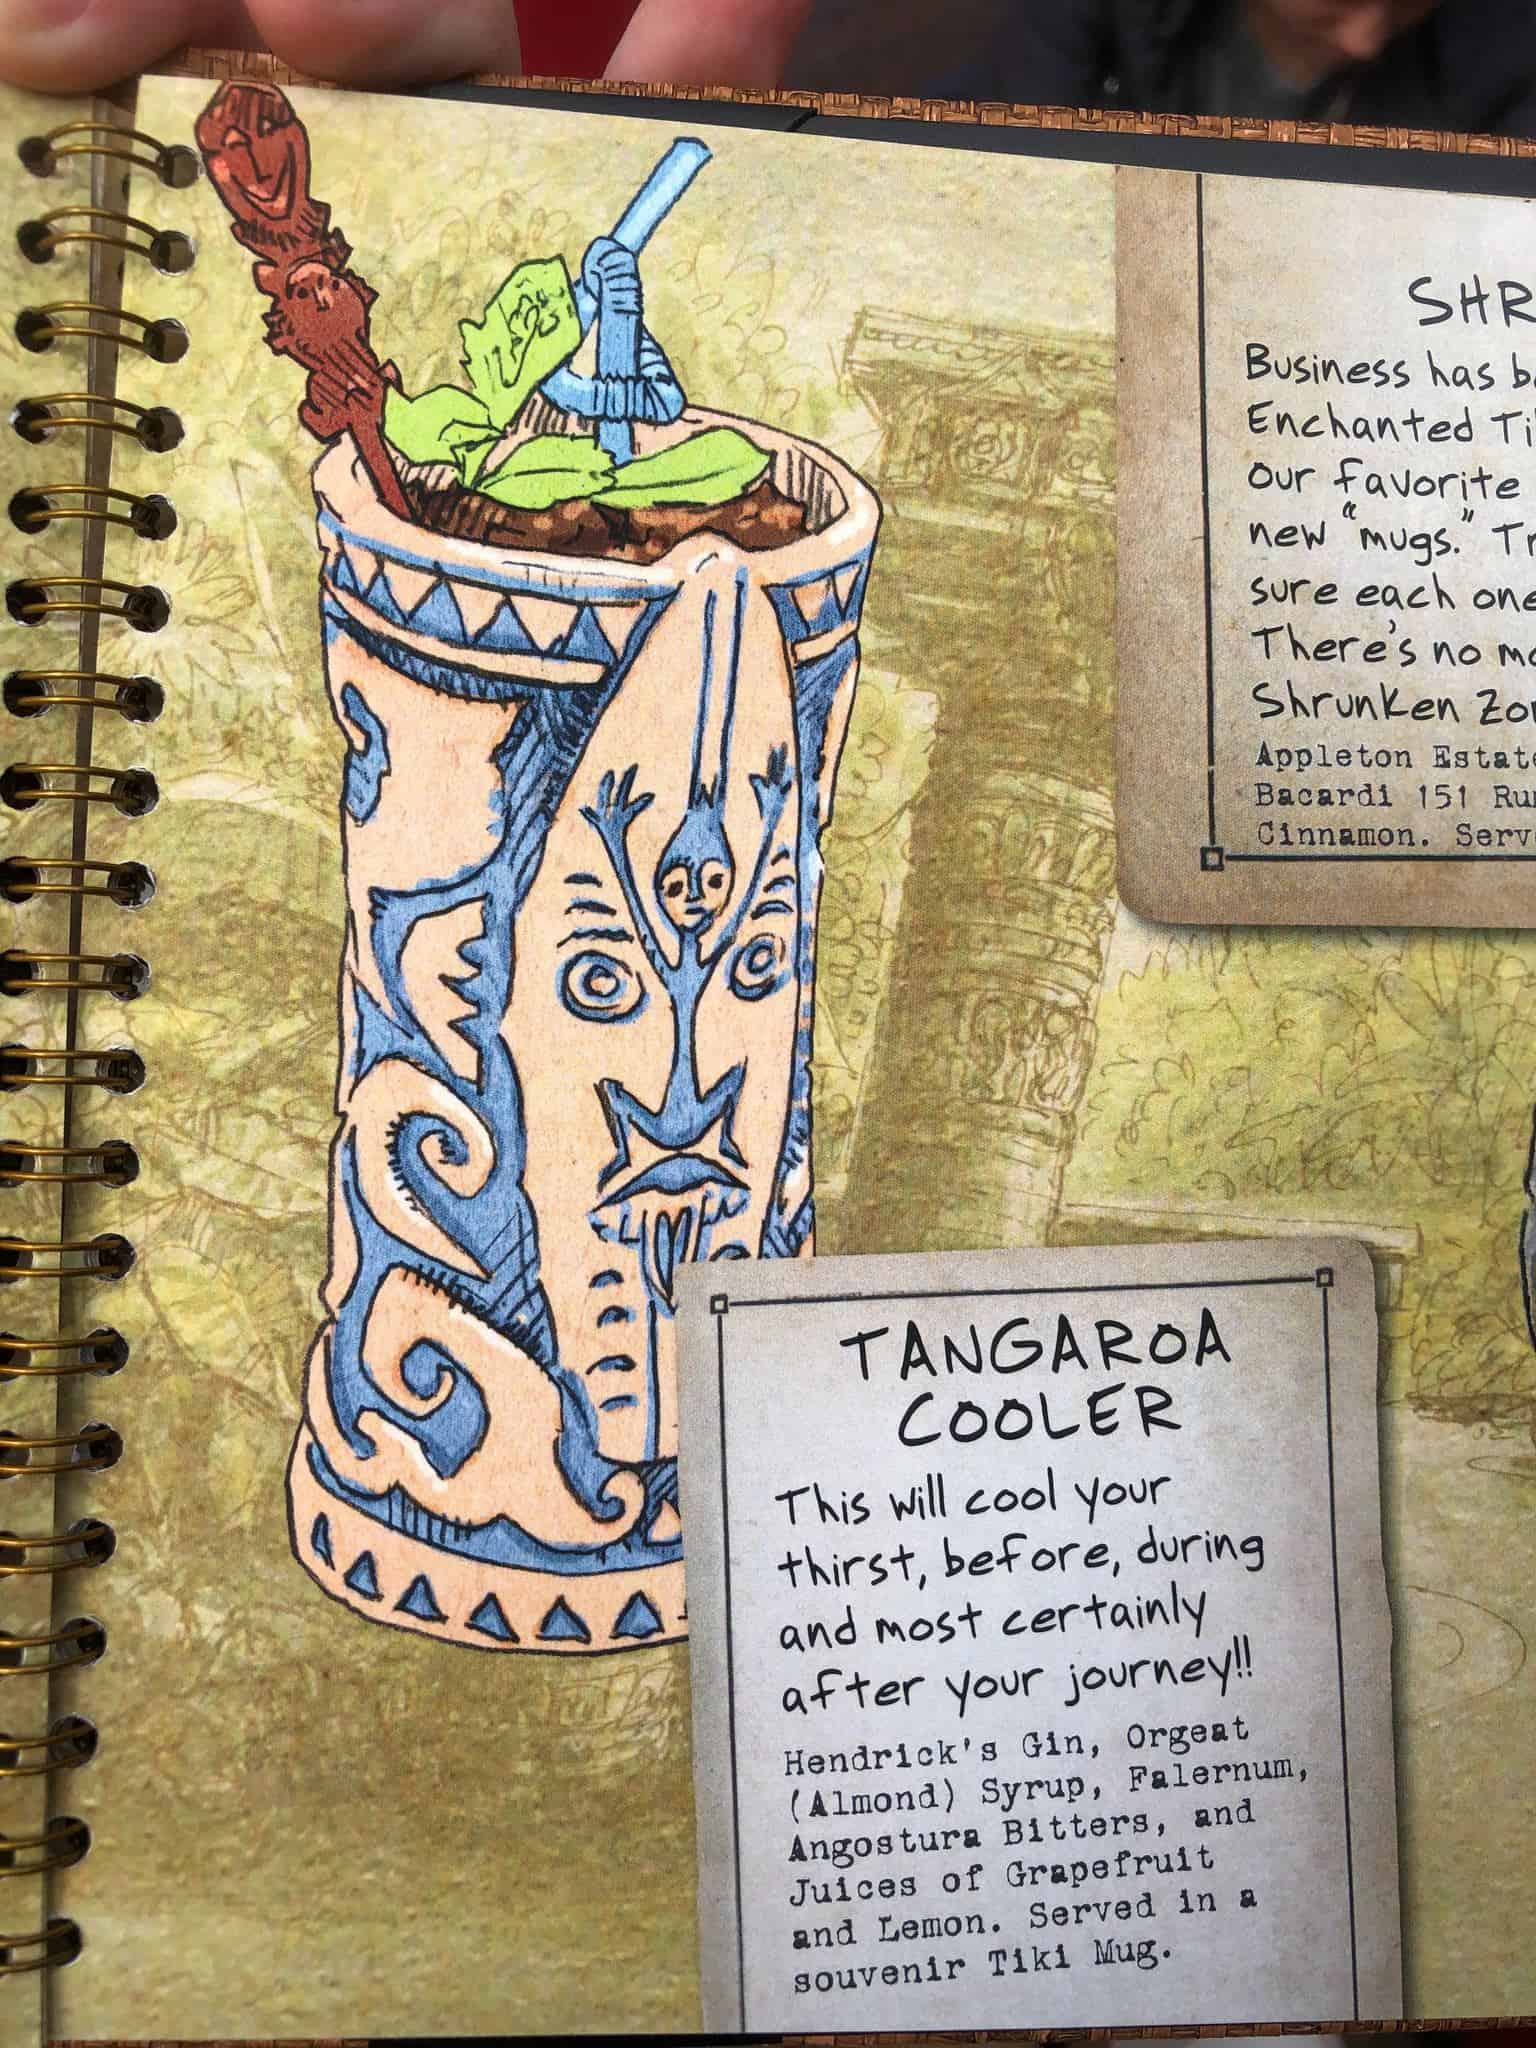 SHR
Business has
Enchanted
our favorite
new "mugs."
sure each one
There's no
Shrunken
Appleton Estate
Bacardi 151
Cinnamon.
TANGAROA
COOLER
This will cool your
thirst, before, during
and most certainly
after your journey!!
Hendrick's Gin, Orgeat
(Almond) Syrup, Falernum,
Angostura Bitters, and
Juices of Grapefruit
and Lemon. Served in a
souvenir Tiki Mug.